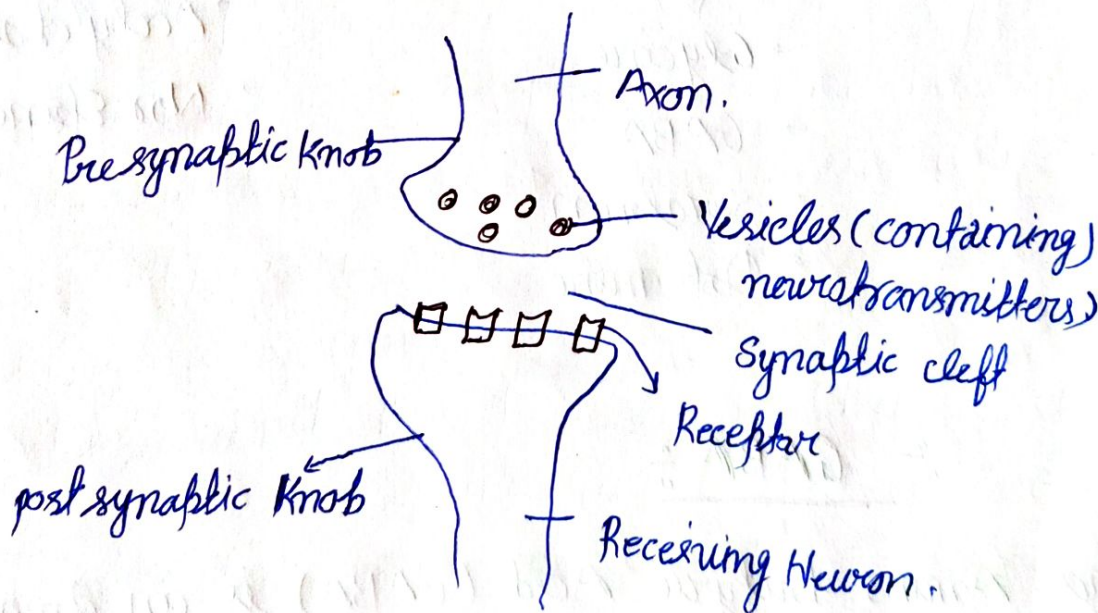 Axon.
Presynaptic Knob
Vesicles (containing)
neurotransmitters)
Synaptic cleft
Receptor
post synaptic Knob
Receiving Neuron.